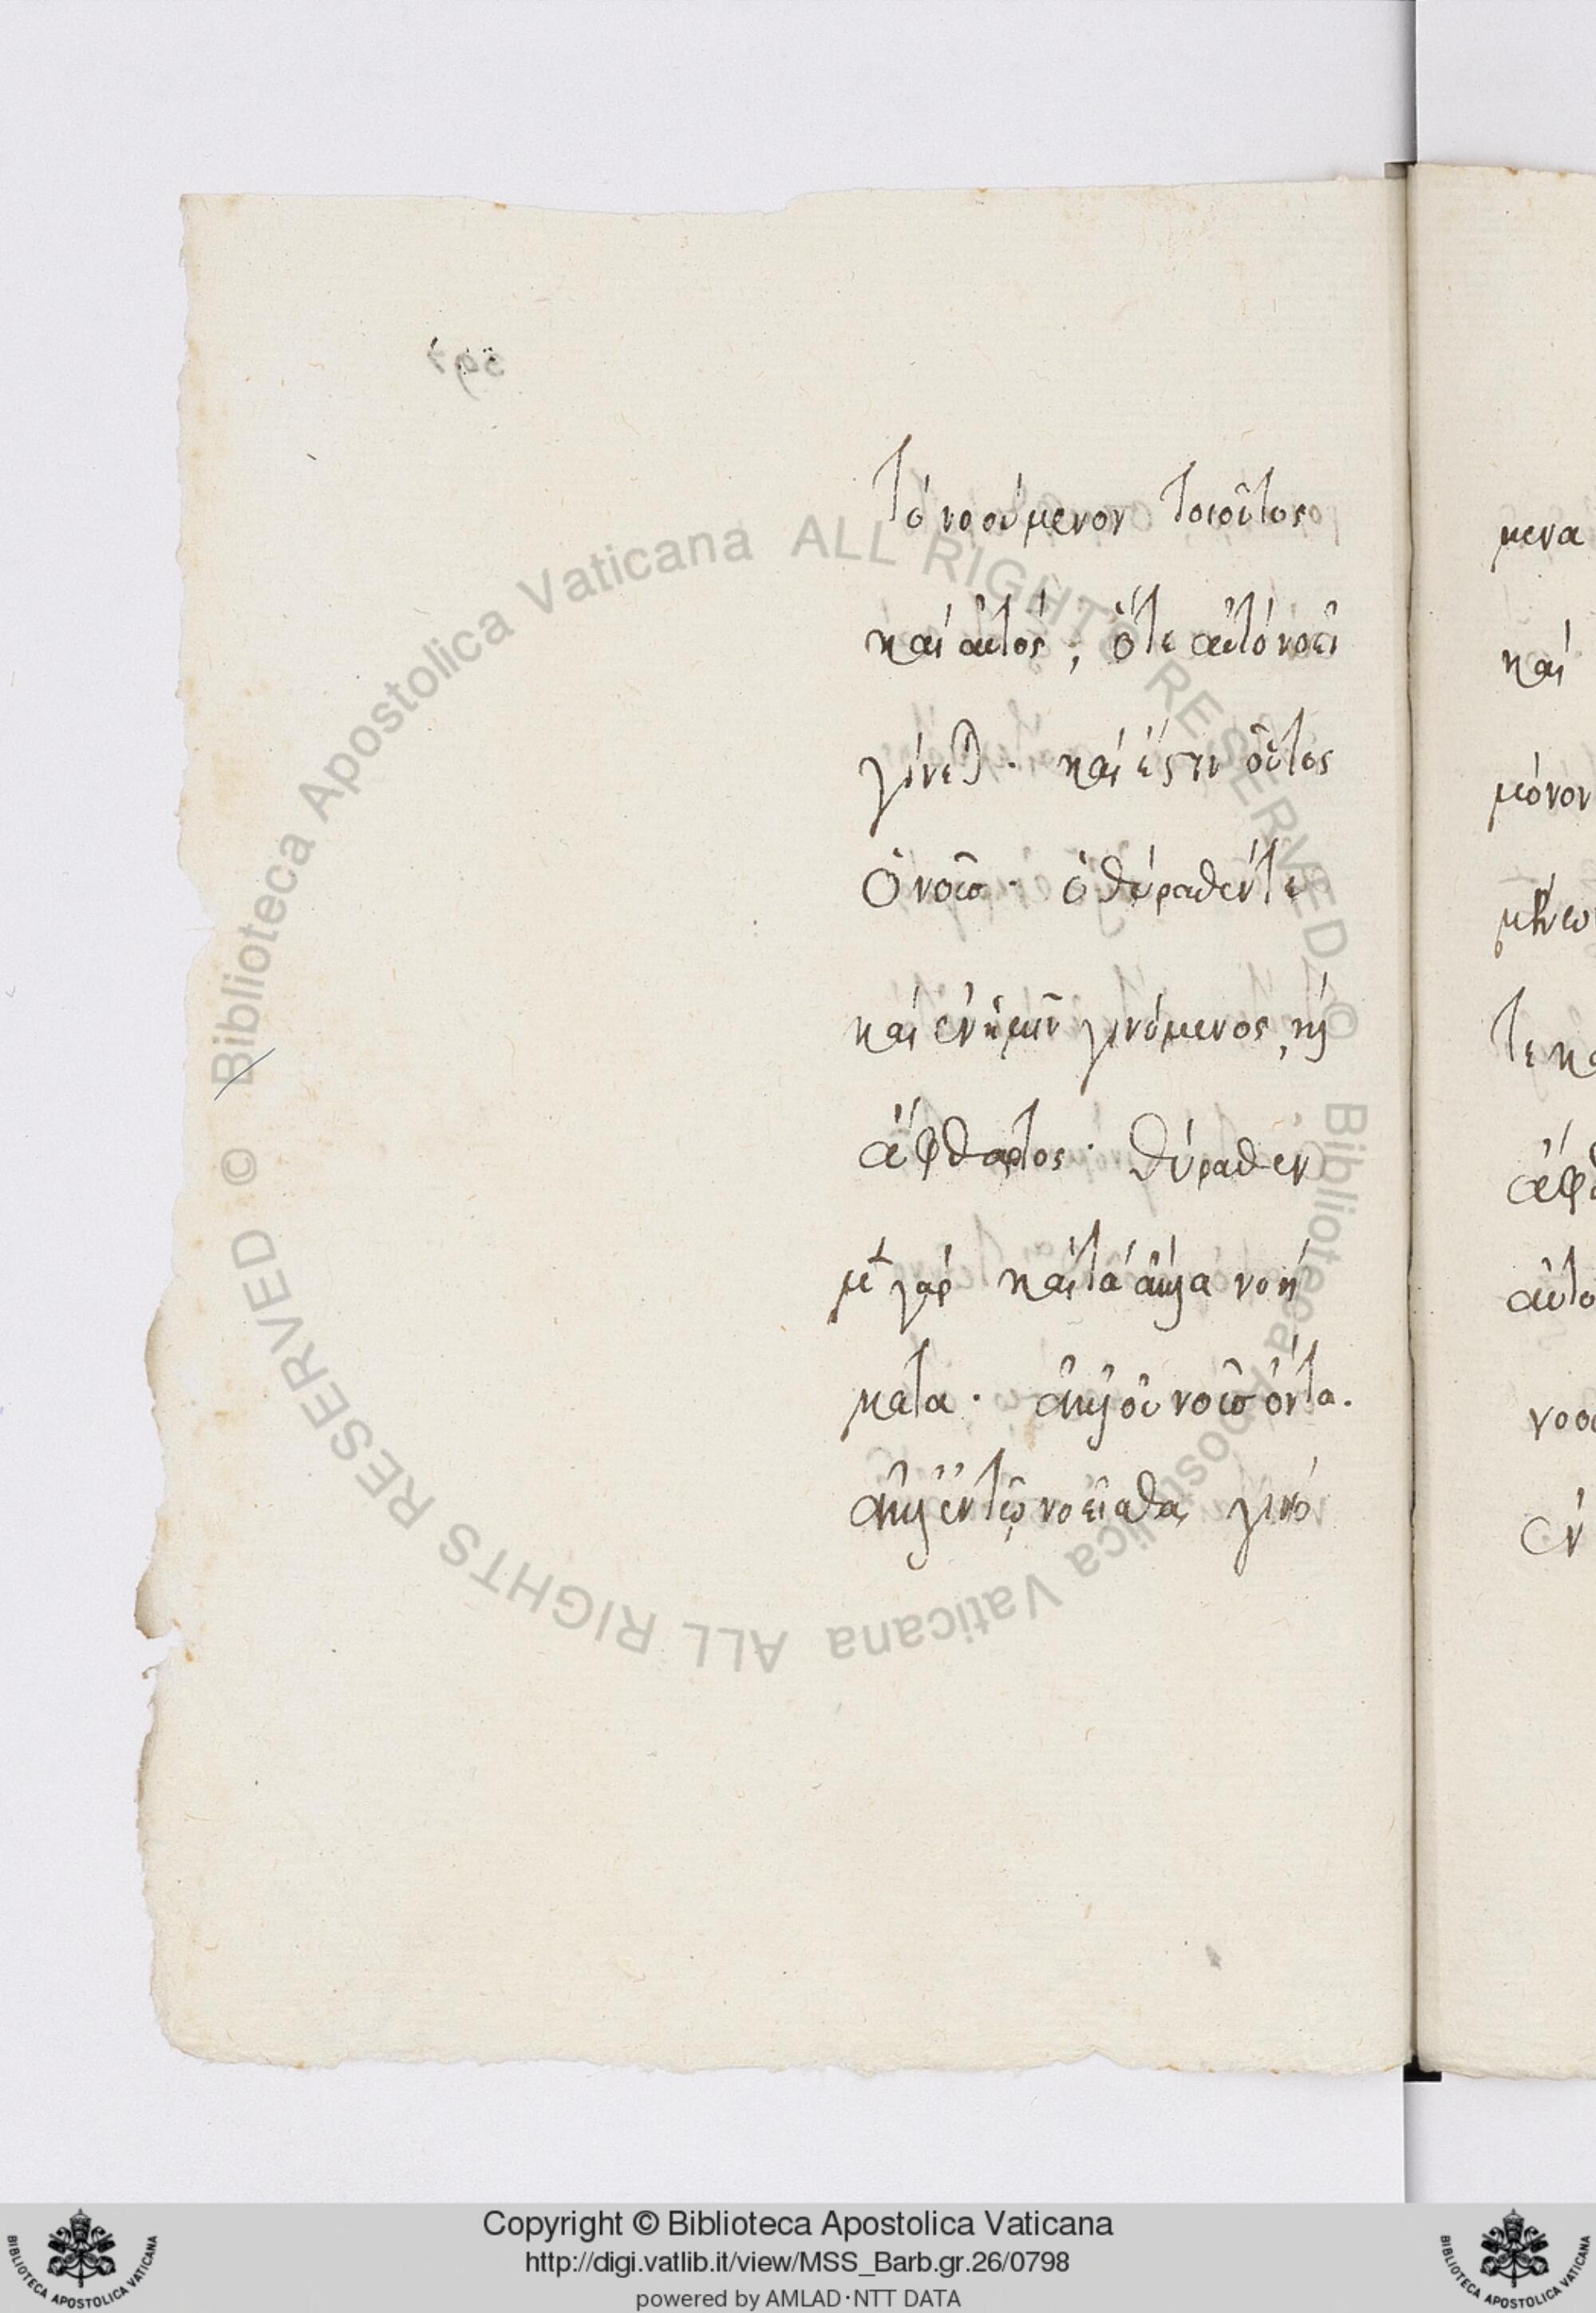 τὸ νοούμενον τοιοῦτος
καὶ αὐτός, ὅτε αὐτὸ νοεῖ
γίνεται· καὶ ἔστιν οὗτος
ὁ νοῦς· ὁ θύραθέν τε
καὶ ἐν ἡμῖν γινόμενος, καὶ
ἄφθαρτος· θύραθεν
μὲν γὰρ καὶ τὰ ἄλλα νοή
ματα· ἀλλ' οὐ νοῦς ὄντα.
ἀλλ' ἐν τῷ νοεῖσθαι γινό
μενα
καὶ
μόνον
τε κα
ἀφθ
αὐτο
νοο
ἐν
© Biblioteca Apostolica Vaticana ALL RIGHTS RESERVED © Biblioteca Apostolica Vaticana ALL RIGHTS RESERVED
Copyright © Biblioteca Apostolica Vaticana
http://digi.vatlib.it/view/MSS_Barb.gr.26/0798
powered by AMLAD·NTT DATA
BIBLIOTECA APOSTOLICA VATICANA
BIBLIOTECA APOSTOLICA VATICANA